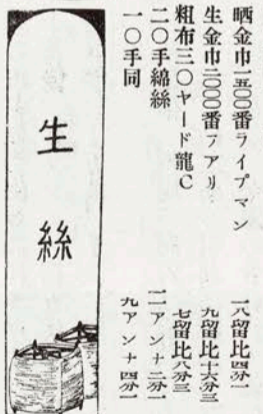 晒金巾一五〇〇番ライプマン 一八留比四分一
生金巾二〇〇〇番フアリ 九留比十六分三
粗布三〇ヤード龍C 七留比八分三
二〇手綿絲 一一アンナ二分一
一〇手同 九アンナ四分一
生絲